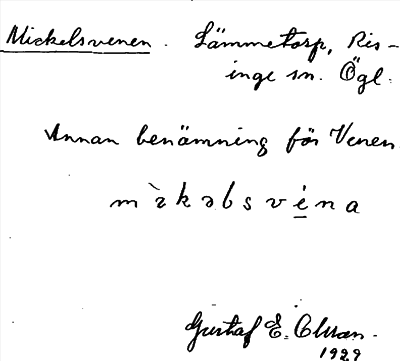 Mickelsvenen. Lämmetorp, Ris-
inge sn. Ögl.
Annan benämning för Venen
Gustaf E.
1929